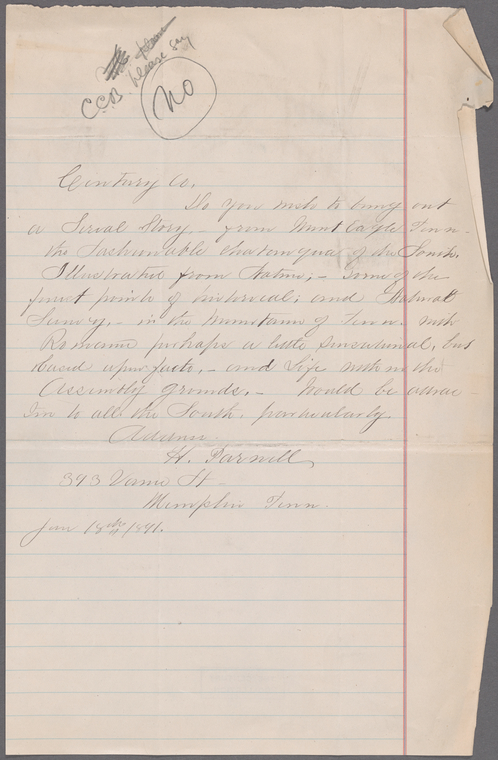 C.C.B. please say
No
Century Co,
Do you wish to bring out
a Serial Story, - from Mont Eagle Tenn -
the Fashionable Chatauqua of the South.
Illustrated from Nature, - Some of the
finest points of historical; and Natural
Scenery, - in the Mountains of Tenn. with
Romance perhaps a little sensational, but
based upon facts, - and Life within the
Assembly grounds. - Would be attrac
tive to all the South, particularly.
Address
H. Parnell,
393 Vance St -
Memphis Tenn.
Jan 18th 1891.